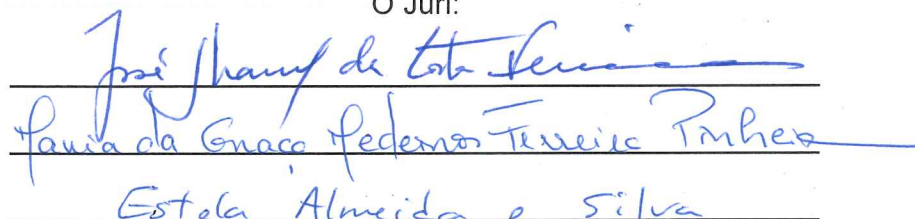 O Júri:
José Manuel da Costa Ferreira
Maria da Graça Medeiros Ferreira Pinheiro
Estela Almeida e Silva